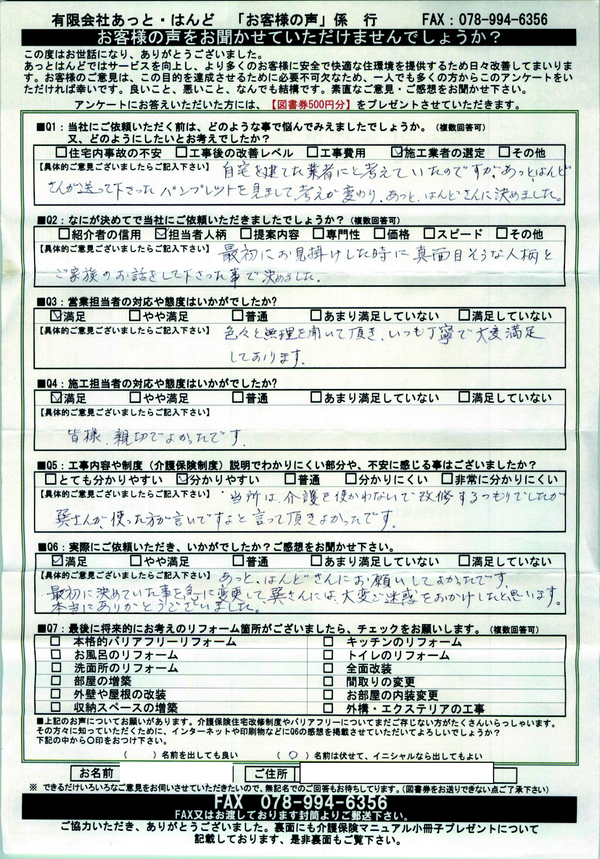 有限会社あっと・はんど 「お客様の声」係 行 FAX：078-994-6356
お客様の声をお聞かせていただけませんでしょうか？
この度はお世話になり、ありがとうございました。
あっとはんどではサービスを向上し、より多くのお客様に安全で快適な住環境を提供するため日々改善してまいります。お客様のご意見は、この目的を達成させるために必要不可欠なため、一人でも多くの方からこのアンケートをいただければ幸いです。良いこと、悪いこと、なんでも結構です。素直なご意見・ご感想をお聞かせ下さい。
アンケートにお答えいただいた方には、【図書券500円分】をプレゼントさせていただきます。
■Q1：当社にご依頼いただく前は、どのような事で悩んでみえましたでしょうか。（複数回答可）
又、どのようにしたいとお考えでしたか？
□住宅内事故の不安 □工事後の改善レベル □工事費用 ☑施工業者の選定 □その他
【具体的ご意見ございましたらご記入下さい】 自宅を建てた業者にと考えていたのですが、あっと、はんど
さんが送って下さったパンフレットを見まして考えが変わり、あっと、はんどさんに決めました。
■Q2：なにが決めてで当社にご依頼いただきましたでしょうか？（複数回答可）
□紹介者の信用 ☑担当者人柄 □提案内容 □専門性 □価格 □スピード □その他
【具体的ご意見ございましたらご記入下さい】 最初にお見掛けした時に真面目そうな人柄と
ご家族のお話をして下さった事で決めました。
■Q3：営業担当者の対応や態度はいかがでしたか？
☑満足 □やや満足 □普通 □あまり満足していない □満足していない
【具体的ご意見ございましたらご記入下さい】 色々と無理を聞いて頂き、いつも丁寧で大変満足
しております。
■Q4：施工担当者の対応や態度はいかがでしたか？
☑満足 □やや満足 □普通 □あまり満足していない □満足していない
【具体的ご意見ございましたらご記入下さい】
皆様、親切でよかったです。
■Q5：工事内容や制度（介護保険制度）説明でわかりにくい部分や、不安に感じる事はございましたか？
□とても分かりやすい ☑分かりやすい □普通 □分かりにくい □非常に分かりにくい
【具体的ご意見ございましたらご記入下さい】 当所は、介護を使わないで改修するつもりでしたが
巽さんが、使った方が言いですよと言って頂きよかったです。
■Q6：実際にご依頼いただき、いかがでしたか？ご感想をお聞かせ下さい。
☑満足 □やや満足 □普通 □あまり満足していない □満足していない
【具体的ご意見ございましたらご記入下さい】 あっと、はんどさんにお願いしてよかったです。
最初に決めていた事を急に変更して、巽さんには、大変ご迷惑をおかけしたと思います。
本当にありがとうございました。
■Q7：最後に将来的にお考えのリフォーム箇所がございましたら、チェックをお願いします。（複数回答可）
□ 本格的バリアフリーリフォーム □ キッチンのリフォーム
□ お風呂のリフォーム □ トイレのリフォーム
□ 洗面所のリフォーム □ 全面改装
□ 部屋の増築 □ 間取りの変更
□ 外壁や屋根の改装 □ お部屋の内装変更
□ 収納スペースの増築 □ 外構・エクステリアの工事
■上記のお声についてお願いがあります。介護保険住宅改修制度やバリアフリーについてまだご存じない方がたくさんいらっしゃいます。
その方々に知っていただくために、インターネットや印刷物などにQ6の感想を掲載させていただいてよろしいでしょうか？
下記の中から〇印をおつけ下さい。
（ ）名前を出しても良い （〇）名前は伏せて、イニシャルなら出してもよい
お名前 ご住所
※ できるだけいろいろなご意見をお伺いさせていただきたいので、無記名でのご回答もお待ちしてます。（図書券をお送りできない点ご了承下さい）
FAX 078-994-6356
FAX又はお渡ししております封筒よりご郵送下さい。
ご協力いただき、ありがとうございました。裏面にも介護保険マニュアル小冊子プレゼントについて
記載しております、是非裏面もご覧下さい。